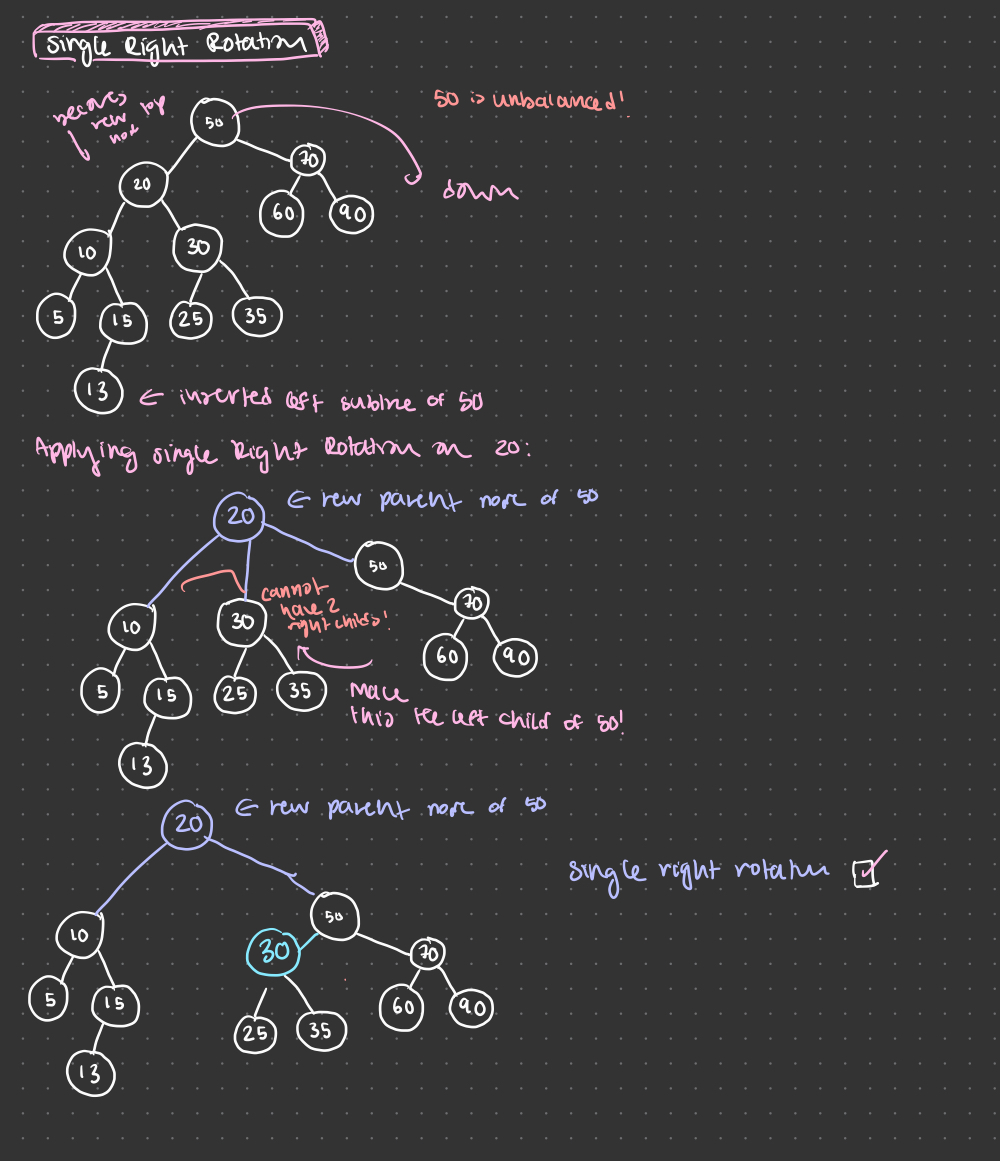 Single Right Rotation
becomes
new top
node
50 is unbalanced!
50
down
70
20
60
90
10
30
5
15
25
35
13
← inserted left subtree of 50
Applying single Right Rotation on 20:
20
← new parent node of 50
50
cannot
have 2
right childs!
70
10
30
60
90
5
15
25
35
Make
this the left child of 50!
13
20
← new parent node of 50
single right rotation
50
10
30
70
5
15
60
90
25
35
13